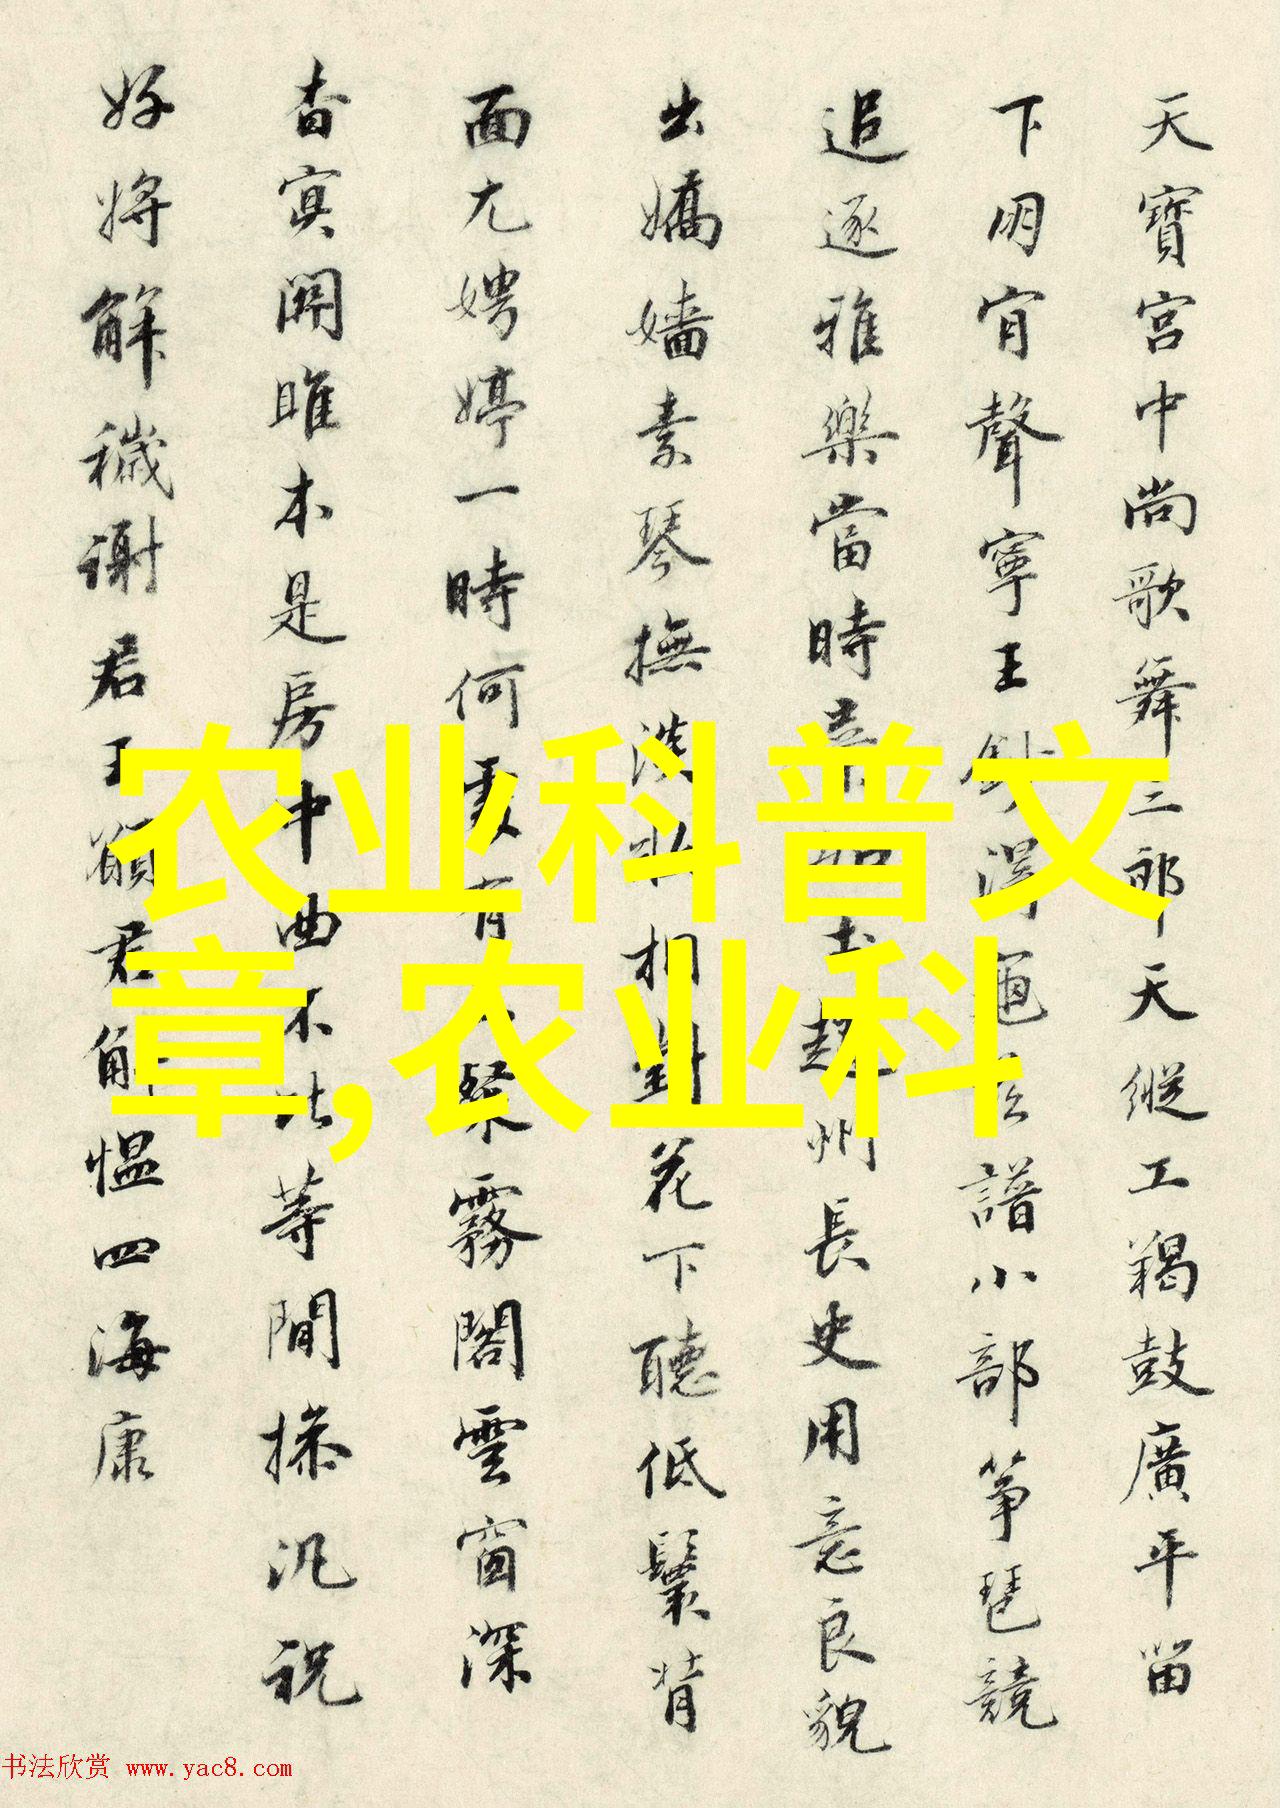 天寶宮中尚歌舞三郎天縱工羯鼓廣平笛
下明宵聲寧王譜小部箏琵競
追逐雅樂當時州長史用意良貌
出嬌嬙素琴撫相對花下聽低鬟背
面尤娉婷一時何有霧閣雲窗深
杳冥關雎本是房中曲不比等閒操汎祝
好將解穢謝君王願君解慍四海康
农业科普文
章,农业科
书法欣赏 www.yac8.com